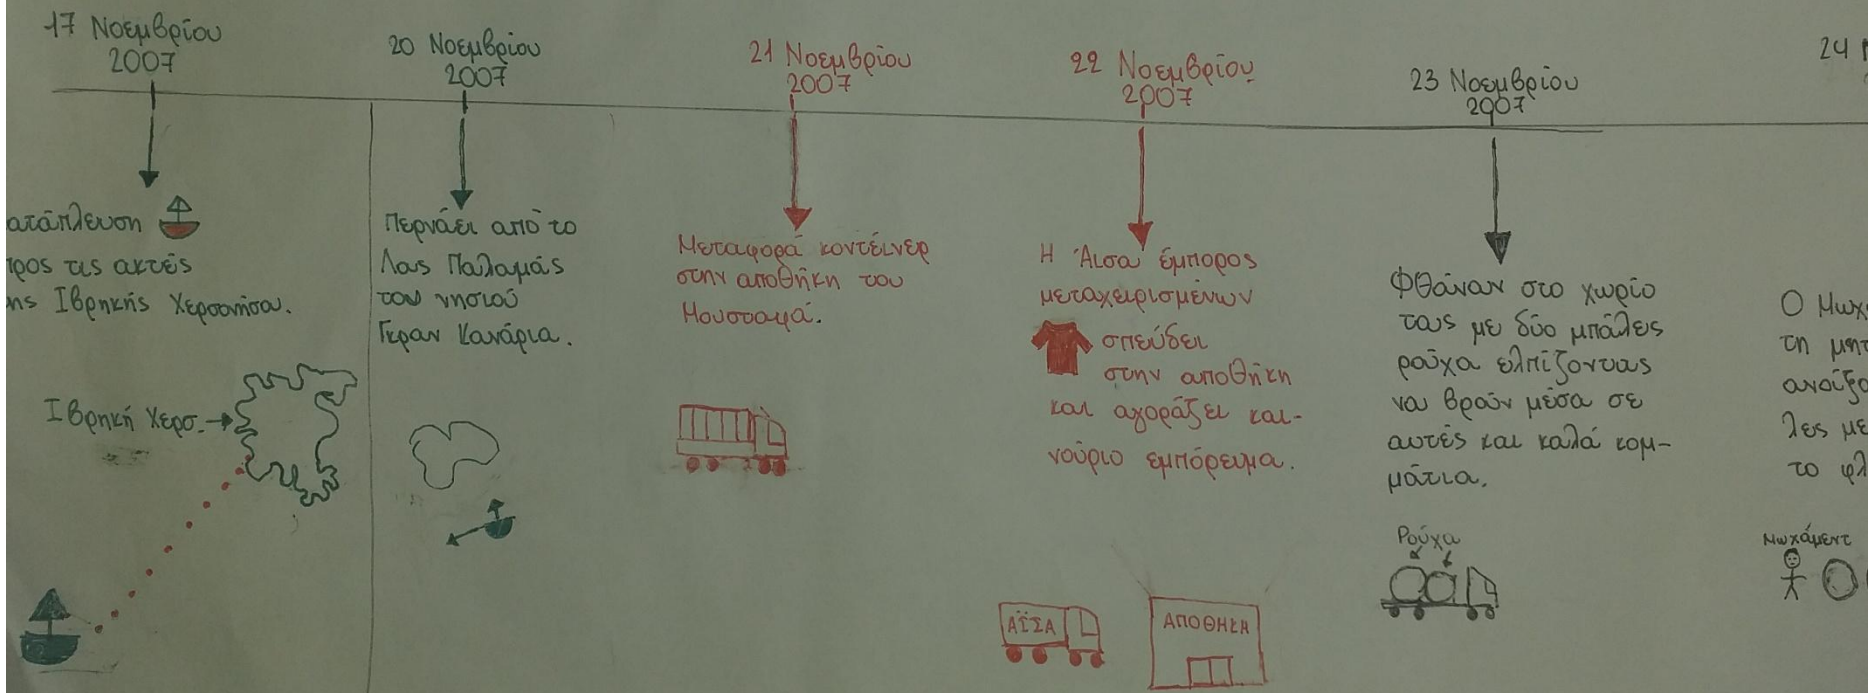 17 Νοεμβρίου
2007
ατάπλευση
προς τις ακτές
ης Ιβρηκής Χερσονήσα.
Ιβρηκή Χερσ.
20 Νοεμβρίου
2007
Περνάει από το
Λας Παλαμάς
του νησιού
Γκραν Κανάρια.
21 Νοεμβρίου
2007
Μεταφορά κοντέινερ
στην αποθήκη του
Μουσταφά.
22 Νοεμβρίου
2007
Η Άισα έμπορος
μεταχειρισμένων
σπεύδει
στην αποθήκη
και αγοράζει και-
νούριο εμπόρευμα.
ΑΪΣΑ
ΑΠΟΘΗΚΑ
23 Νοεμβρίου
2007
Φθάναν στο χωριό
τους με δύο μπάλες
ρούχα ελπίζοντας
να βρούν μέσα σε
αυτές και καλά κομ-
μάτια.
Ρούχα
24
Ο Μωχ
τη μητ
ανοίξο
λες με
το φλ
Μωχάμεντ